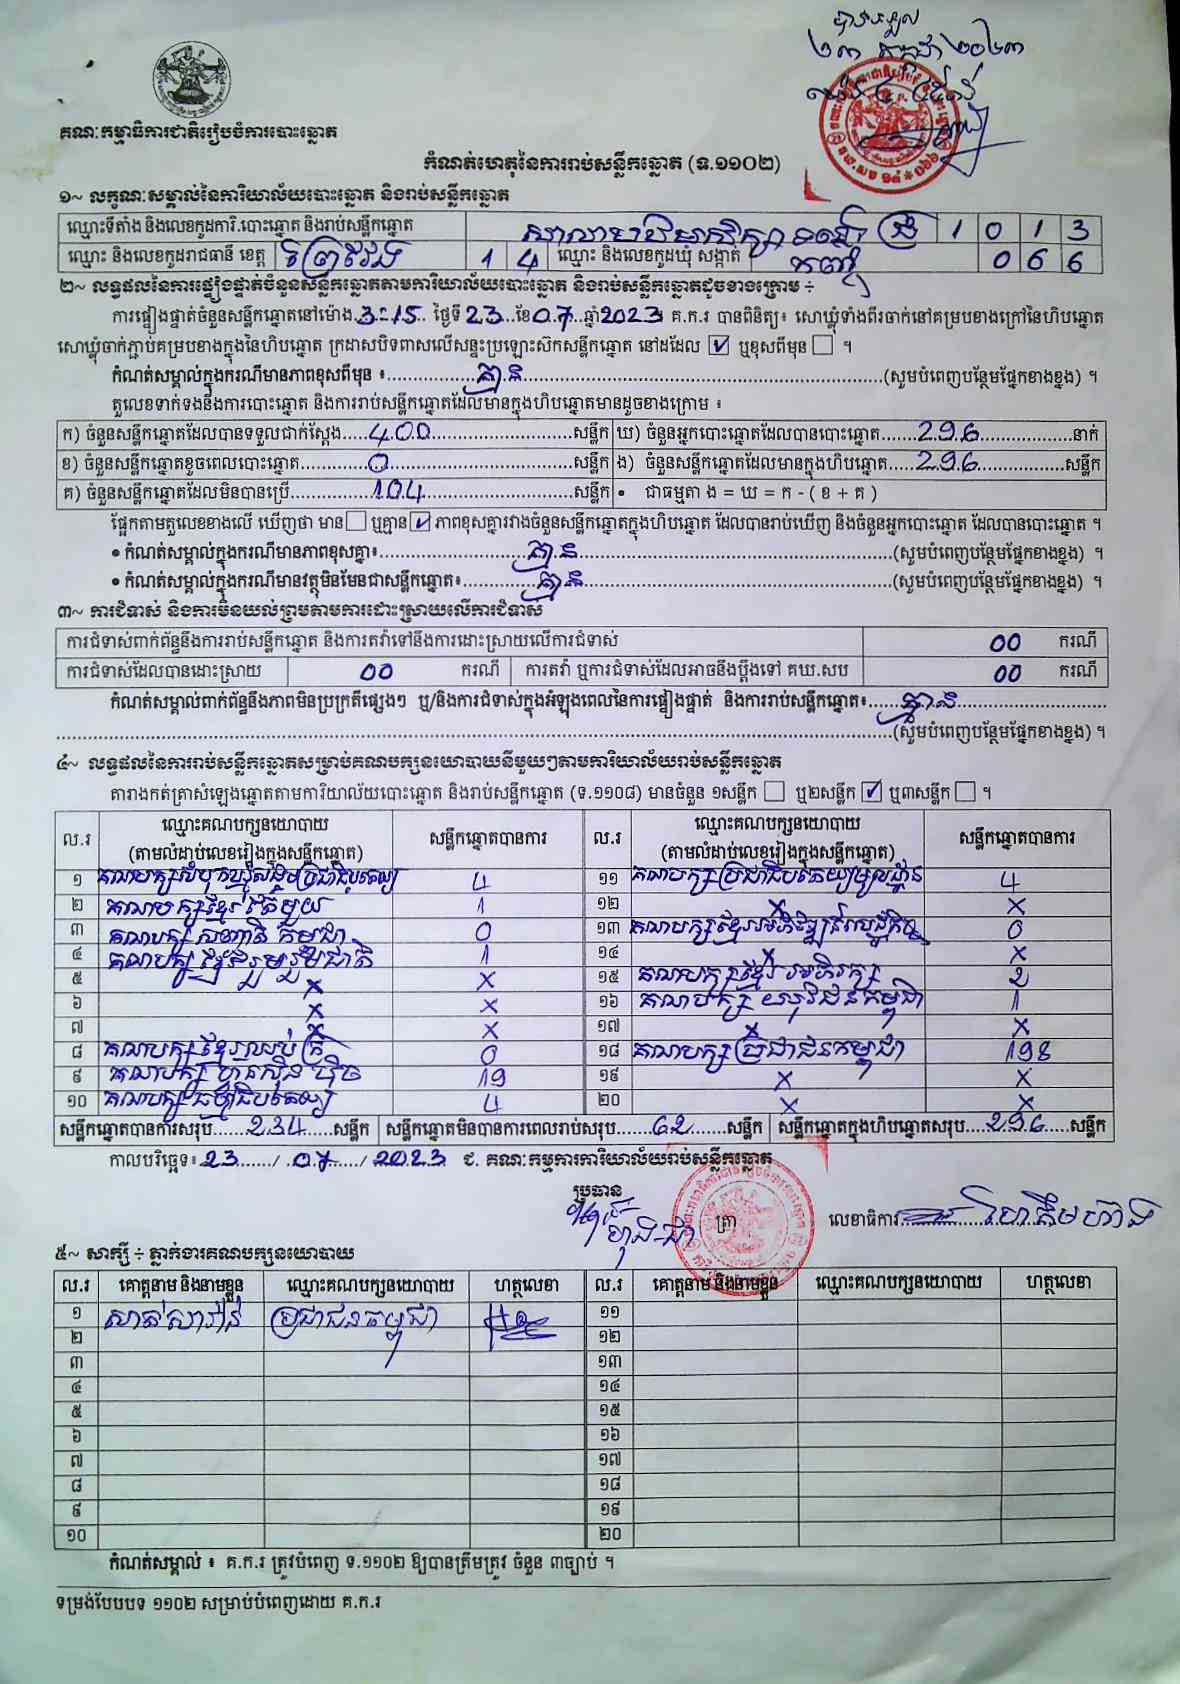 ២៣ កក្កដា ២០២៣
គណៈកម្មាធិការជាតិរៀបចំការបោះឆ្នោត
កំណត់ហេតុនៃការរាប់សន្លឹកឆ្នោត (ទ.១១០២)
១~ លក្ខណៈសម្គាល់នៃការិយាល័យបោះឆ្នោត និងរាប់សន្លឹកឆ្នោត
ឈ្មោះទីតាំង និងលេខកូដការិ.បោះឆ្នោត និងរាប់សន្លឹកឆ្នោត សាលាបឋមសិក្សា 1 0 1 3
ឈ្មោះ និងលេខកូដរាជធានី ខេត្ត ព្រៃវែង 1 4 ឈ្មោះ និងលេខកូដឃុំ សង្កាត់ 0 6 6
២~ លទ្ធផលនៃការផ្ទៀងផ្ទាត់ចំនួនសន្លឹកឆ្នោតតាមការិយាល័យបោះឆ្នោត និងរាប់សន្លឹកឆ្នោតដូចខាងក្រោម ÷
ការផ្ទៀងផ្ទាត់ចំនួនសន្លឹកឆ្នោតនៅម៉ោង 3:15 ថ្ងៃទី 23 ខែ 07 ឆ្នាំ 2023 គ.ក.រ បានពិនិត្យ៖ សោឃ្លុំទាំងពីរចាក់នៅគម្របខាងក្រៅនៃហិបឆ្នោត
សោឃ្លុំចាក់ភ្ជាប់គម្របខាងក្នុងនៃហិបឆ្នោត ក្រដាសបិទពាសលើសន្ទះប្រឡោះស៊កសន្លឹកឆ្នោត នៅដដែល ☑ ឬខុសពីមុន ☐ ។
កំណត់សម្គាល់ក្នុងករណីមានភាពខុសពីមុន ៖ គ្មាន (សូមបំពេញបន្ថែមផ្នែកខាងខ្នង) ។
តួលេខទាក់ទងនឹងការបោះឆ្នោត និងការរាប់សន្លឹកឆ្នោតដែលមានក្នុងហិបឆ្នោតមានដូចខាងក្រោម ៖
ក) ចំនួនសន្លឹកឆ្នោតដែលបានទទួលជាក់ស្តែង 400 សន្លឹក ឃ) ចំនួនអ្នកបោះឆ្នោតដែលបានបោះឆ្នោត 296 នាក់
ខ) ចំនួនសន្លឹកឆ្នោតខូចពេលបោះឆ្នោត 0 សន្លឹក ង) ចំនួនសន្លឹកឆ្នោតដែលមានក្នុងហិបឆ្នោត 296 សន្លឹក
គ) ចំនួនសន្លឹកឆ្នោតដែលមិនបានប្រើ 104 សន្លឹក • ជាធម្មតា ង = ឃ = ក - ( ខ + គ )
ផ្អែកតាមតួលេខខាងលើ ឃើញថា មាន ☐ ឬគ្មាន ☑ ភាពខុសគ្នារវាងចំនួនសន្លឹកឆ្នោតក្នុងហិបឆ្នោត ដែលបានរាប់ឃើញ និងចំនួនអ្នកបោះឆ្នោត ដែលបានបោះឆ្នោត ។
• កំណត់សម្គាល់ក្នុងករណីមានភាពខុសគ្នា៖ គ្មាន (សូមបំពេញបន្ថែមផ្នែកខាងខ្នង) ។
• កំណត់សម្គាល់ក្នុងករណីមានវត្ថុមិនមែនជាសន្លឹកឆ្នោត៖ គ្មាន (សូមបំពេញបន្ថែមផ្នែកខាងខ្នង) ។
៣~ ការជំទាស់ និងការមិនយល់ព្រមតាមការដោះស្រាយលើការជំទាស់
ការជំទាស់ពាក់ព័ន្ធនឹងការរាប់សន្លឹកឆ្នោត និងការតវ៉ាទៅនឹងការដោះស្រាយលើការជំទាស់ 00 ករណី
ការជំទាស់ដែលបានដោះស្រាយ 00 ករណី ការតវ៉ា ឬការជំទាស់ដែលអាចនឹងប្តឹងទៅ គឃ.សប 00 ករណី
កំណត់សម្គាល់ពាក់ព័ន្ធនឹងភាពមិនប្រក្រតីផ្សេងៗ ឬ/និងការជំទាស់ក្នុងអំឡុងពេលនៃការផ្ទៀងផ្ទាត់ និងការរាប់សន្លឹកឆ្នោត៖ គ្មាន
(សូមបំពេញបន្ថែមផ្នែកខាងខ្នង) ។
៤~ លទ្ធផលនៃការរាប់សន្លឹកឆ្នោតសម្រាប់គណបក្សនយោបាយនីមួយៗតាមការិយាល័យរាប់សន្លឹកឆ្នោត
តារាងកត់ត្រាសំឡេងឆ្នោតតាមការិយាល័យបោះឆ្នោត និងរាប់សន្លឹកឆ្នោត (ទ.១១០៨) មានចំនួន ១សន្លឹក ☐ ឬ២សន្លឹក ☑ ឬ៣សន្លឹក ☐ ។
ល.រ ឈ្មោះគណបក្សនយោបាយ សន្លឹកឆ្នោតបានការ ល.រ ឈ្មោះគណបក្សនយោបាយ សន្លឹកឆ្នោតបានការ
(តាមលំដាប់លេខរៀងក្នុងសន្លឹកឆ្នោត) (តាមលំដាប់លេខរៀងក្នុងសន្លឹកឆ្នោត)
១ គណបក្សសំបុកឃ្មុំសង្គមប្រជាធិបតេយ្យ 4 ១១ គណបក្សប្រជាធិបតេយ្យមូលដ្ឋាន 4
២ គណបក្សខ្មែរតែមួយ 1 ១២ × ×
៣ គណបក្ស សញ្ជាតិ កម្ពុជា 0 ១៣ គណបក្សខ្មែរអភិវឌ្ឍន៍សេដ្ឋកិច្ច 0
៤ គណបក្ស ខ្មែររួបរួមជាតិ 1 ១៤ ×
៥ × × ១៥ គណបក្សខ្មែរ អភិរក្ស 2
៦ × × ១៦ គណបក្ស យុវជនកម្ពុជា 1
៧ × × ១៧ × ×
៨ គណបក្សខ្មែរឈប់ក្រ 0 ១៨ គណបក្សប្រជាជនកម្ពុជា 198
៩ គណបក្ស ហ៊្វុនស៊ិនប៉ិច 19 ១៩ × ×
១០ គណបក្សធម្មាធិបតេយ្យ 4 ២០ × ×
សន្លឹកឆ្នោតបានការសរុប 234 សន្លឹក សន្លឹកឆ្នោតមិនបានការពេលរាប់សរុប 62 សន្លឹក សន្លឹកឆ្នោតក្នុងហិបឆ្នោតសរុប 296 សន្លឹក
កាលបរិច្ឆេទ៖ 23 / 07 / 2023 ជ. គណៈកម្មការការិយាល័យរាប់សន្លឹកឆ្នោត
ប្រធាន
ត្រា លេខាធិការ
៥~ សាក្សី ÷ ភ្នាក់ងារគណបក្សនយោបាយ
ល.រ គោត្តនាម និងនាមខ្លួន ឈ្មោះគណបក្សនយោបាយ ហត្ថលេខា ល.រ គោត្តនាម និងនាមខ្លួន ឈ្មោះគណបក្សនយោបាយ ហត្ថលេខា
១ ប្រជាជនកម្ពុជា ១១
២ ១២
៣ ១៣
៤ ១៤
៥ ១៥
៦ ១៦
៧ ១៧
៨ ១៨
៩ ១៩
១០ ២០
កំណត់សម្គាល់ ៖ គ.ក.រ ត្រូវបំពេញ ទ.១១០២ ឱ្យបានត្រឹមត្រូវ ចំនួន ៣ច្បាប់ ។
ទម្រង់បែបបទ ១១០២ សម្រាប់បំពេញដោយ គ.ក.រ